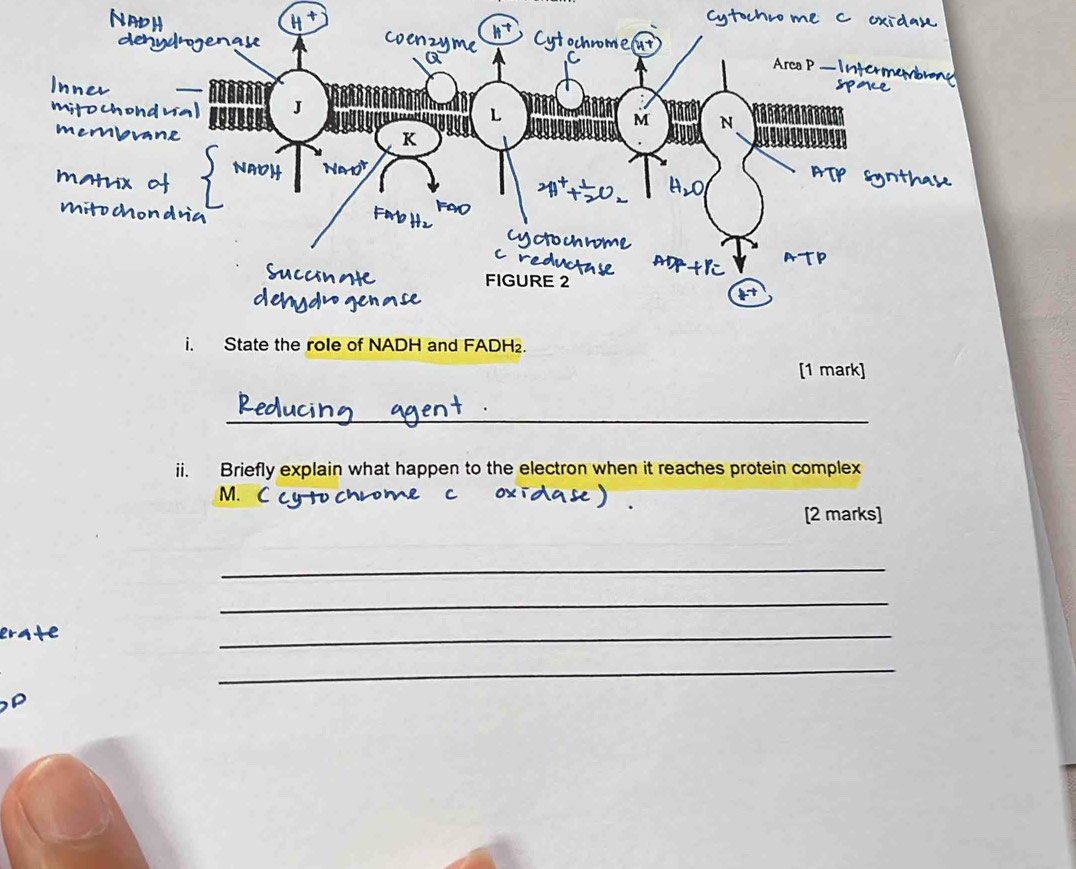 NADH
dehydrogenase
H+
coenzyme
Q
H+
Cytochrome
C
H+
cytochrome c oxidase
Area P — Intermembrane
space
Inner
mitochondrial
membrane
J
K
L
M
N
matrix of
mitochondria
NADH
NAD+
FADH2
FAD
2H+ + ½O2
H2O
ATP synthase
cyctochrome
c reductase
ADP + Pi
ATP
H+
Succinate
dehydrogenase
FIGURE 2
i. State the role of NADH and FADH₂.
[1 mark]
Reducing agent.
ii. Briefly explain what happen to the electron when it reaches protein complex
M. (cytochrome c oxidase).
[2 marks]
erate